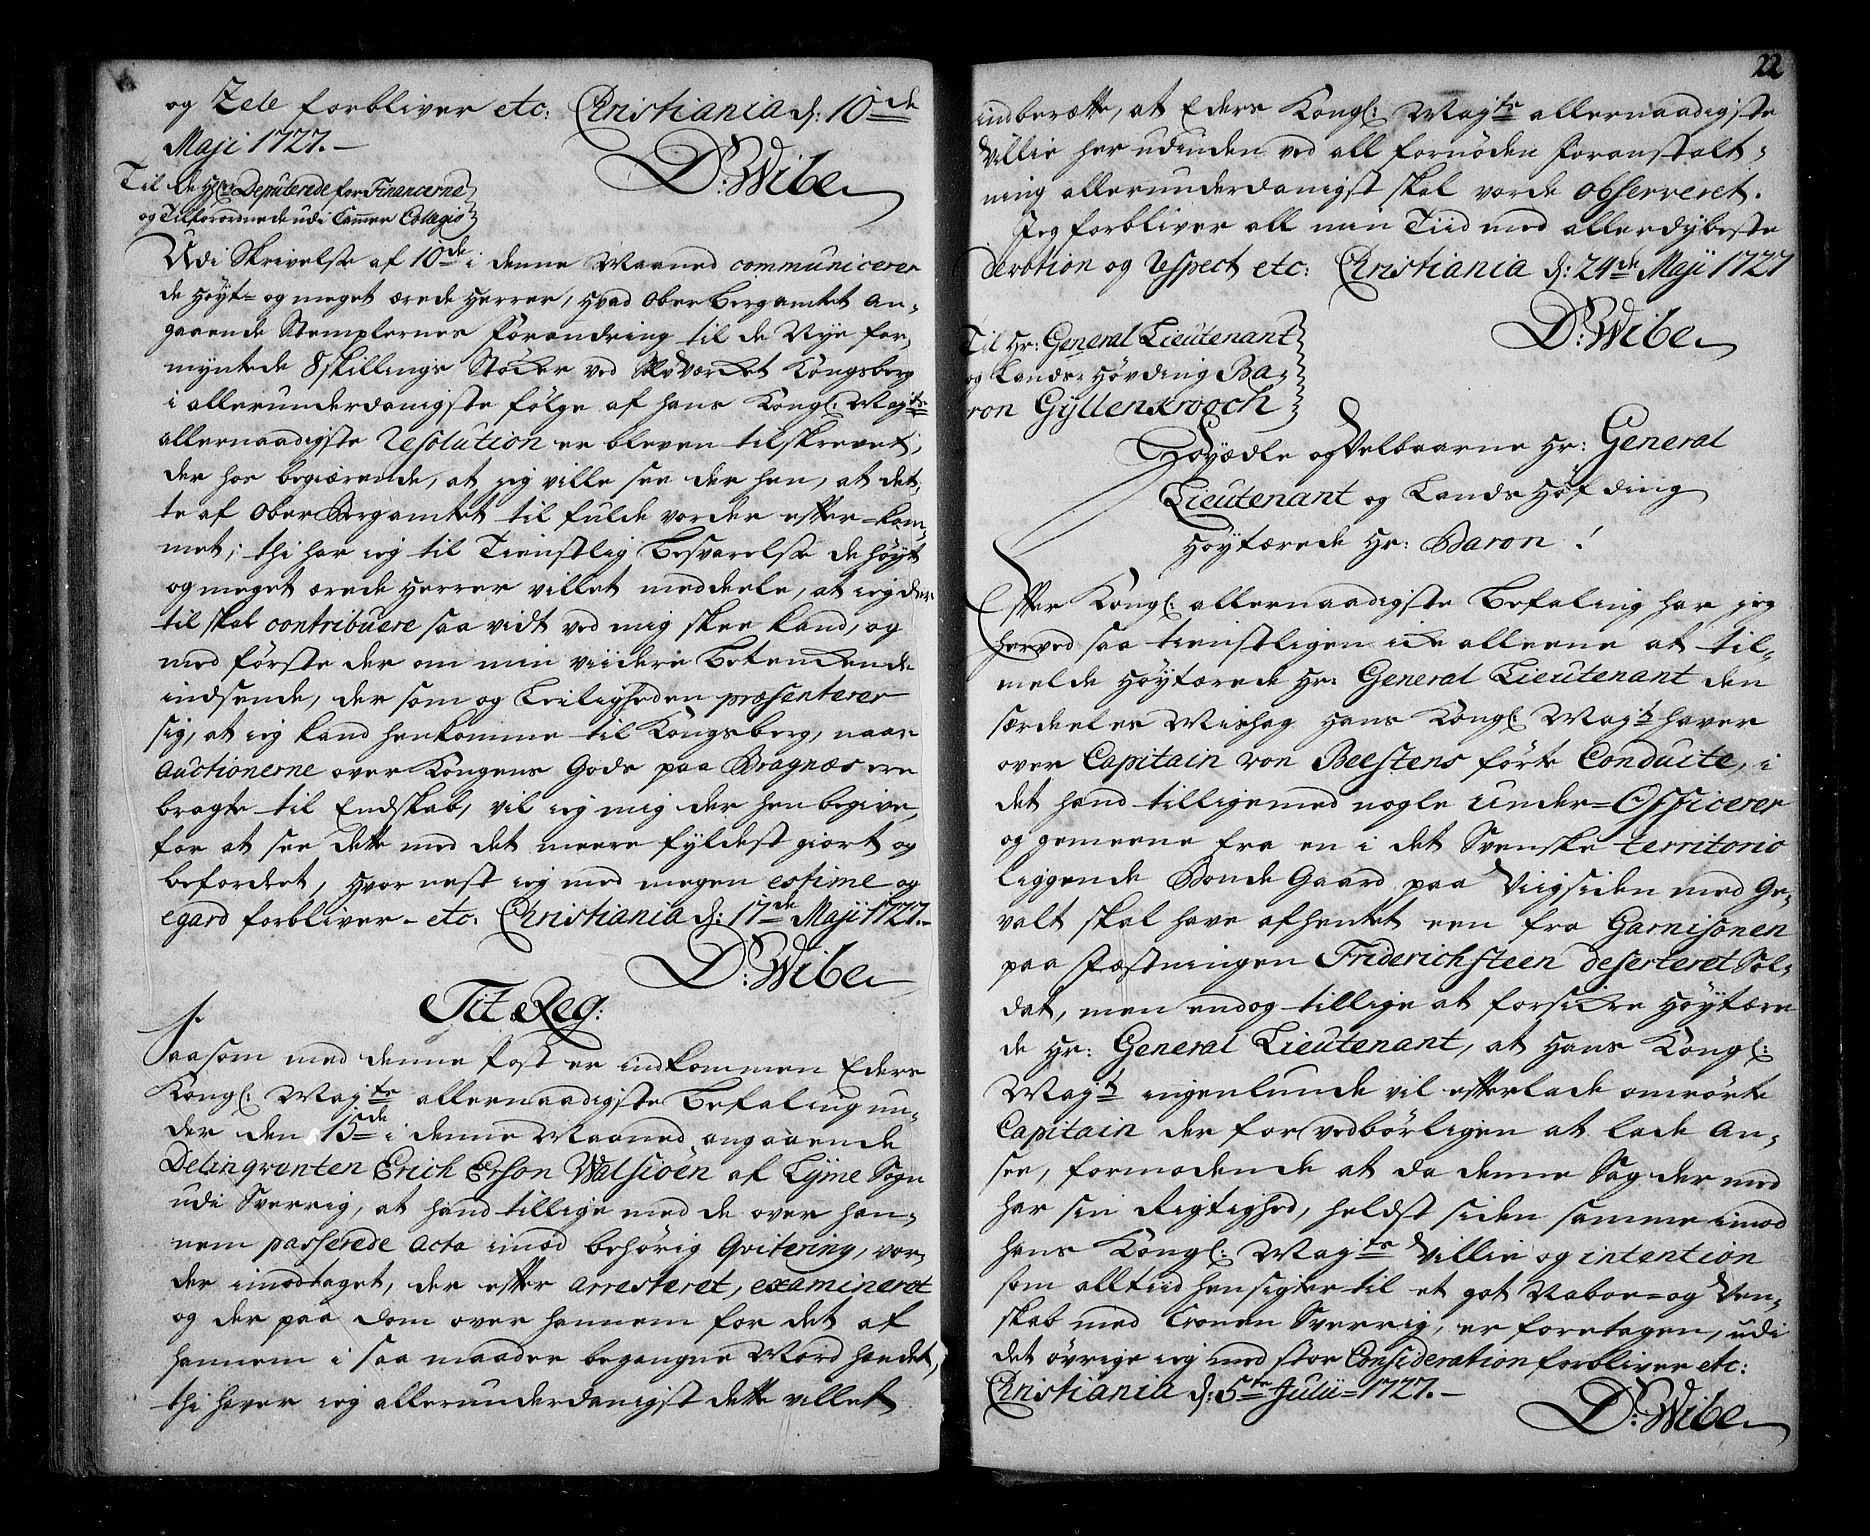 og Zele forbliver etc: Christiania d: 10de
Maji 1727.-
D: Wibe
Til de Hr: Deputerede for Financerne
og Tilforordnede udi Cammer Colegio
Udi Skrivelse af 10de i denne Maaned communicerer
de høyt- og meget ærede Herrer, hvad Ober Bergamtet an-
gaaende Stemplernes Forandring til de Nye for-
myntede 8 skillings Støcker ved Sølv Værcket Kongsberg
i allerunderdanigste følge af hans Kongl: Mayts
allernaadigste Resolution er bleven tilskrevet,
der hos begiærende, at jeg ville see der hen, at det-
te af Ober Bergamtet til fulde vorder efter-kom-
met; thi har ieg til Tienstlig Besvarelse de høyt
og meget ærede Herrer villet meddeele, at ieg der-
til skal contribuere saa vidt ved mig skee kand, og
med første der om min viidere Betenckende
indsende, der som og Leiligheden præsenterer
sig, at ieg kand henkomme til Kongsberg, naar
Auctionerne over Kongens Gods paa Bragnæs ere
bragte til Endskab, vil ieg mig der hen begive,
for at see dette med det meere fyldest giort og
befordret, hvor nest ieg med megen estime og
egard forbliver - etc: Christiania d: 17de Maji 1727.-
D: Wibe
Tit Reg:
Saasom med denne Post er indkommen Eders
Kongl: Mayts allernaadigste Befaling un-
der den 15de i denne Maaned angaaende
Delinqventen Erich Erson Walsiöen af Lyme Sogn
udi Sverrig, at hand tillige med de over han-
nem passerede Acta imod behörig Qvitering, vor-
der imodtaget, der efter arresteret, examineret
og der paa dom over hannem for det af
hannem i saa maader begangne Mord hendet,
thi haver ieg allerunderdanigst dette villet
22
indberætte, at Eders Kongl: Mayts allernaadigste
Villie her udinden ved all fornøden Foranstalt-
ning allerunderdanigst skal vorde observeret.
Jeg forbliver all min Tiid med allerdybeste
devotion og respect etc: Christiania d: 24de Maji 1727
D: Wibe
Til Hr: General Lieutenant
og Lands-Høvding Ba-
ron Gyllenkrooch
Høyædle og Velbaarne Hr: General
Lieutenant og Lands Høfding
Høystærede Hr: Baron!
Efter Kongl: allernaadigste Befaling har jeg
herved saa tienstligen icke alleene at til-
melde Høystærede Hr: General Lieutenant den
særdeeles Mishag Hans Kongl: Mayt haver
over Capitain von Beestens førte Conduite, i
det hand tilligemed nogle under-Officerer
og gemeene fra en i det Svenske territorio
liggende Bonde Gaard paa Viigsiden med Ge-
valt skal have afhentet een fra Garnisonen
paa Fæstningen Friderichsteen deserteret Sol-
dat, men endog tillige at forsickre Høystære-
de Hr: General Lieutenant, at Hans Kongl:
Mayt ingenlunde vil efterlade omrørte
Capitain der for vedbørligen at lade an-
see, formodende at da denne Sag der med
har sin Rigtighed, heldst siden samme imod
hans Kongl: Mayts Villie og intention
som alltiid hensigter til et got Naboe- og Ven-
skab med Cronen Sverrig, er foretagen, udi
det øvrige ieg med stor Consideration forbliver etc:
Christiania d: 5te Julii 1727.-
D: Wibe